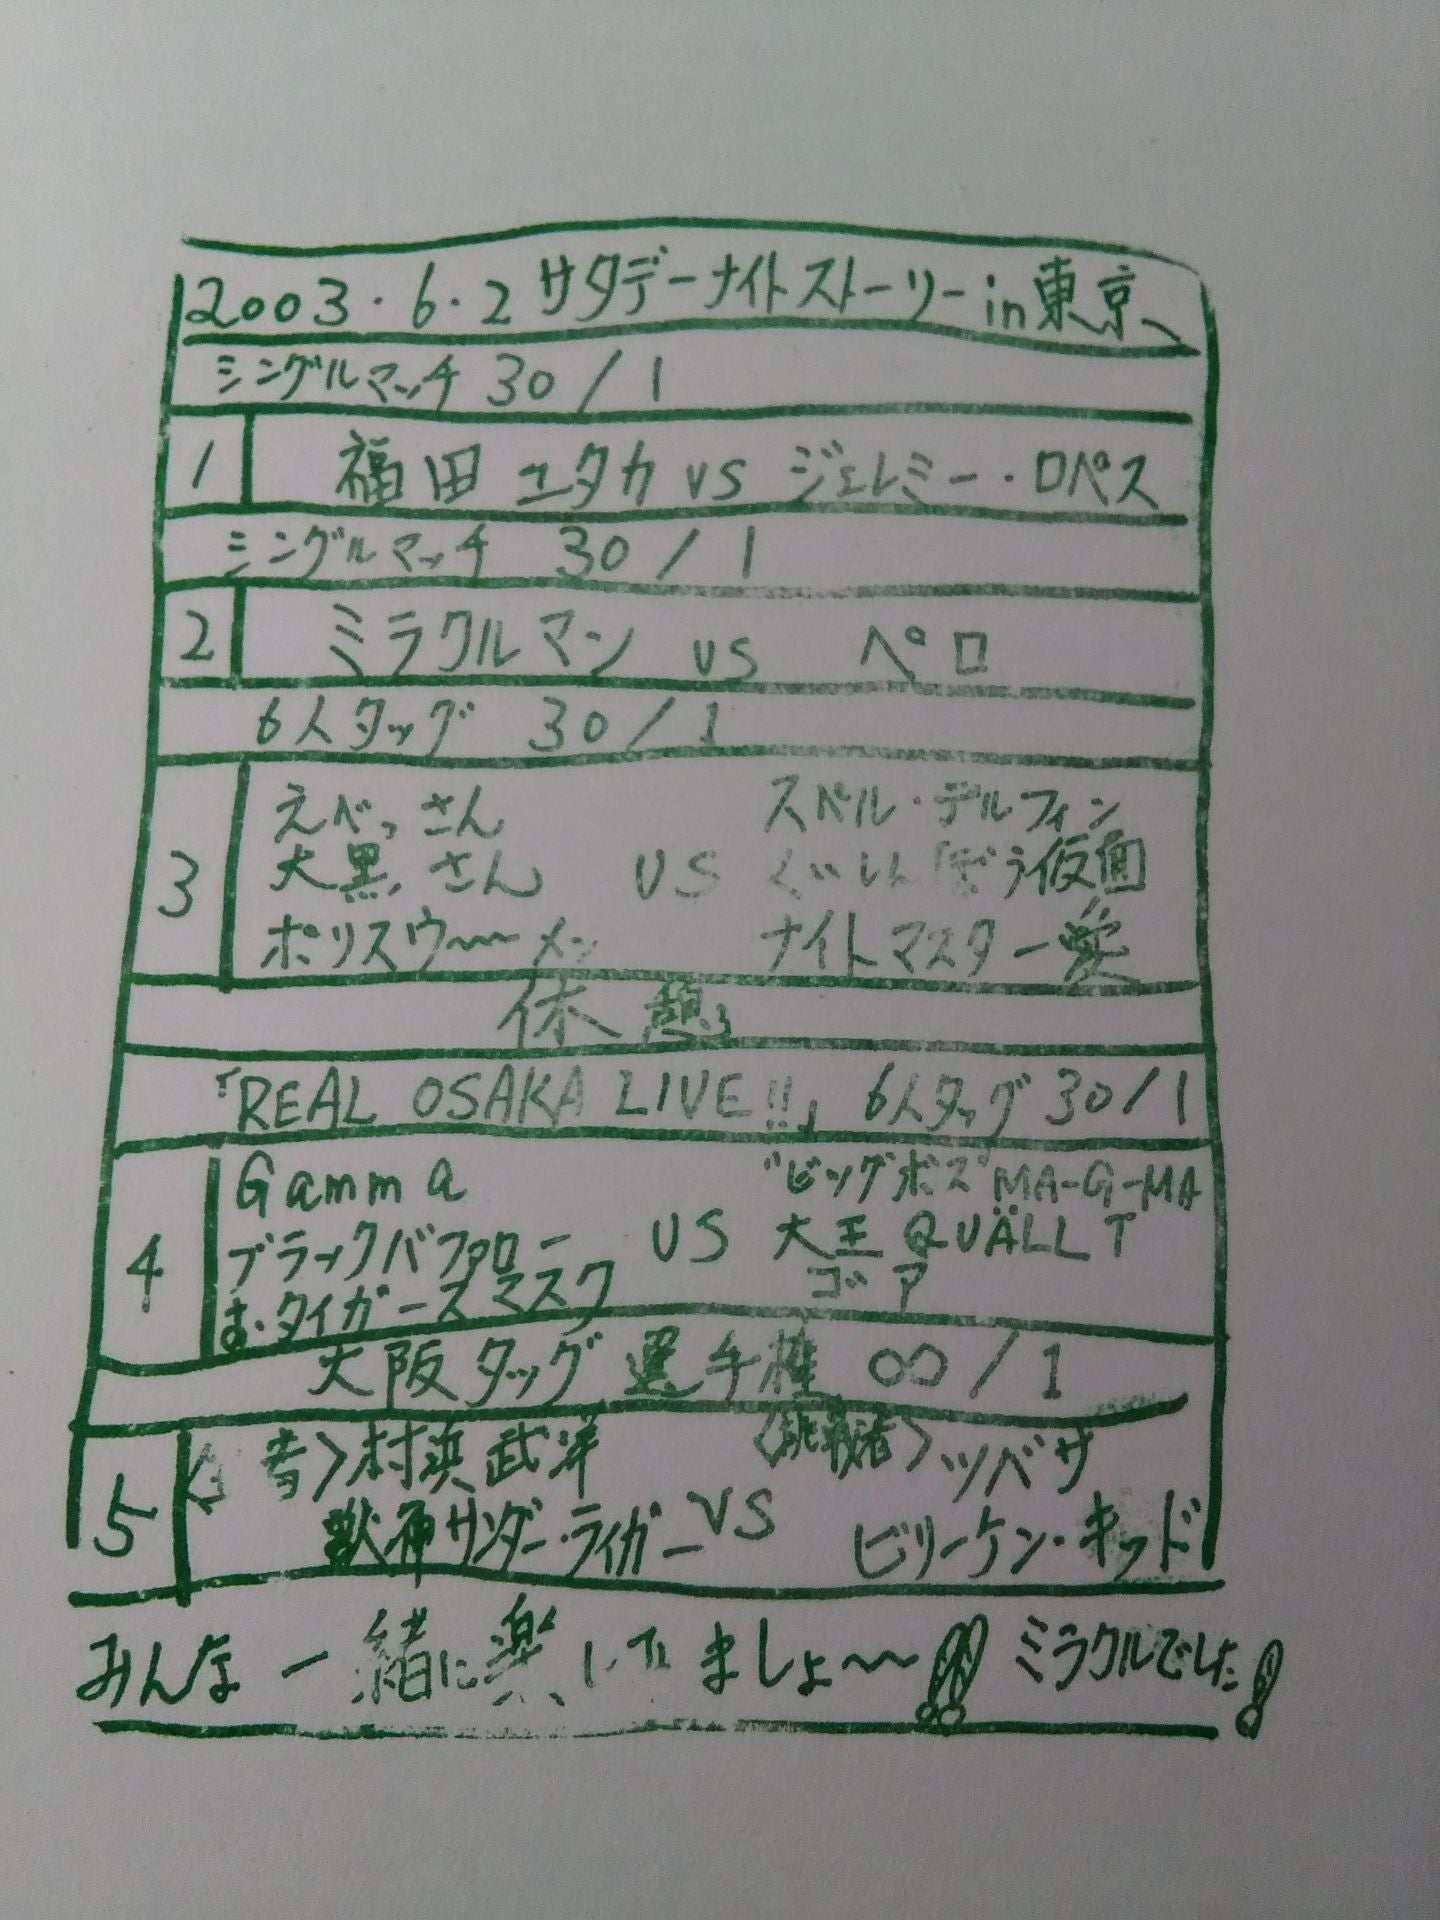 2003.6.2 サタデーナイトストーリー in 東京
シングルマッチ 30/1
1 福田ユタカ vs ジェレミー・ロペス
シングルマッチ 30/1
2 ミラクルマン vs ペロ
6人タッグ 30/1
3
えべっさん スペル・デルフィン
大黒さん VS くいしんぼう仮面
ポリスウ〜〜メン ナイトマスター愛
休憩
「REAL OSAKA LIVE!!」 6人タッグ 30/1
4
Gamma "ビッグボス"MA-G-MA
ブラックバファロー VS 大王QUÄLLT
ま.タイガースマスク ゴア
大阪タッグ選手権 ∞/1
5
者〉村浜武洋 〈挑戦者〉ツバサ
獣神サンダー・ライガー VS ビリーケン・キッド
みんな一緒に楽しみましょ〜〜!!! ミラクルでした!